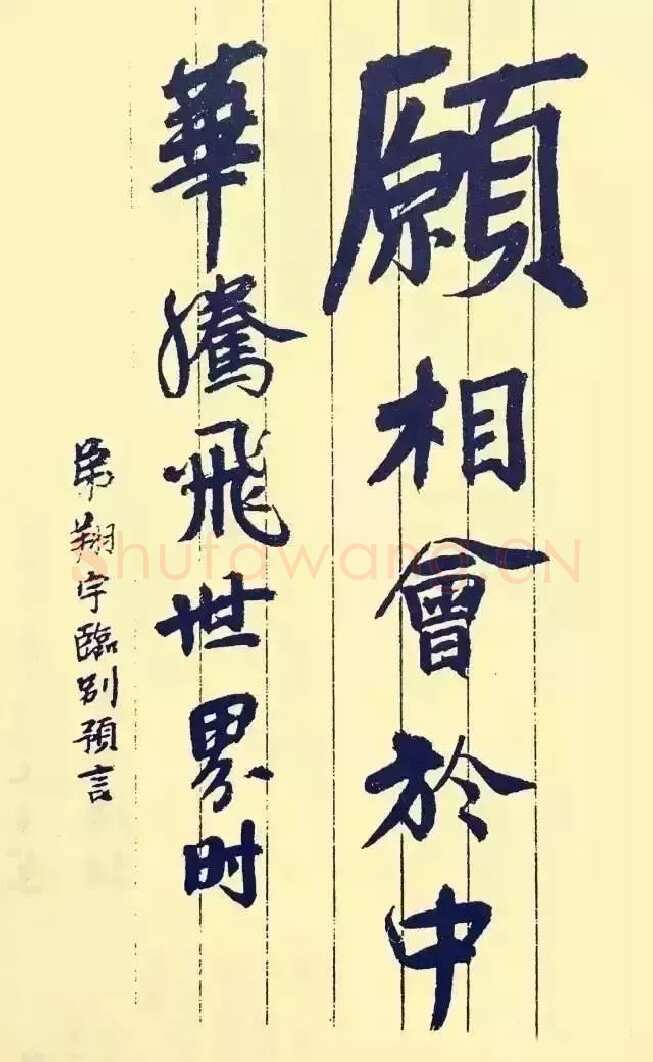 願相會於中
華騰飛世界时
弟翔宇臨别預言
shufawang.CN